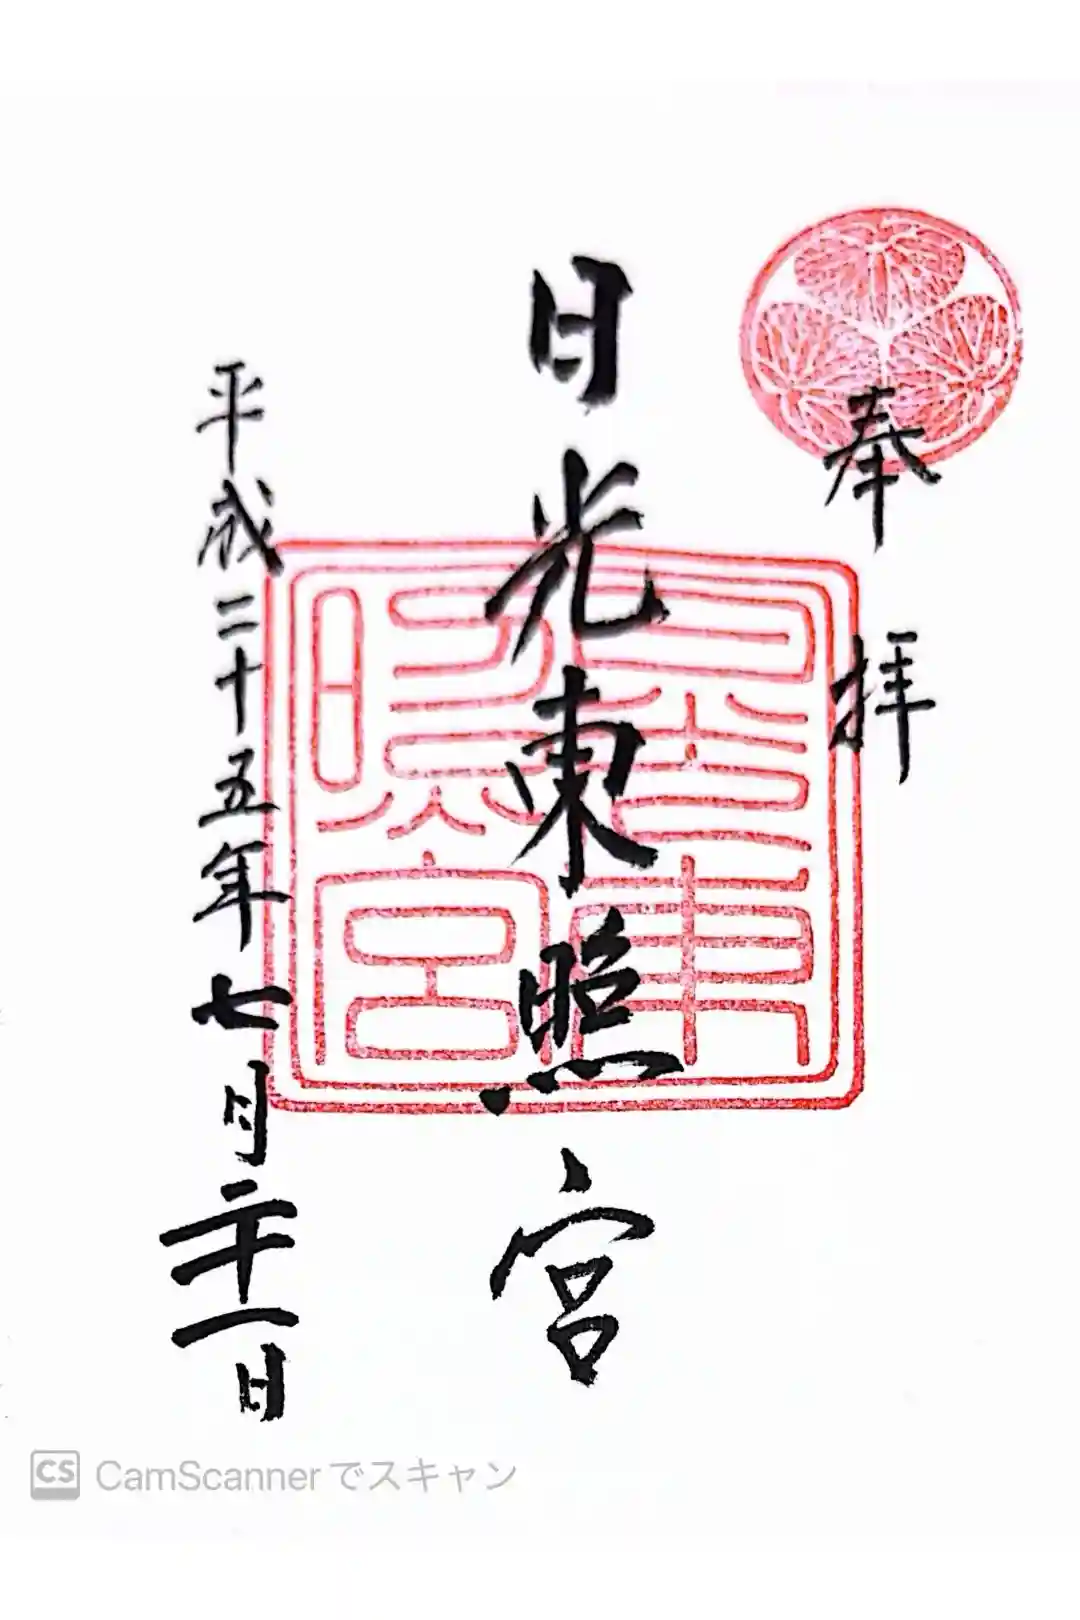 奉拝
日光東照宮
平成二十五年七月二十一日
日光東照宮
CS CamScannerでスキャン